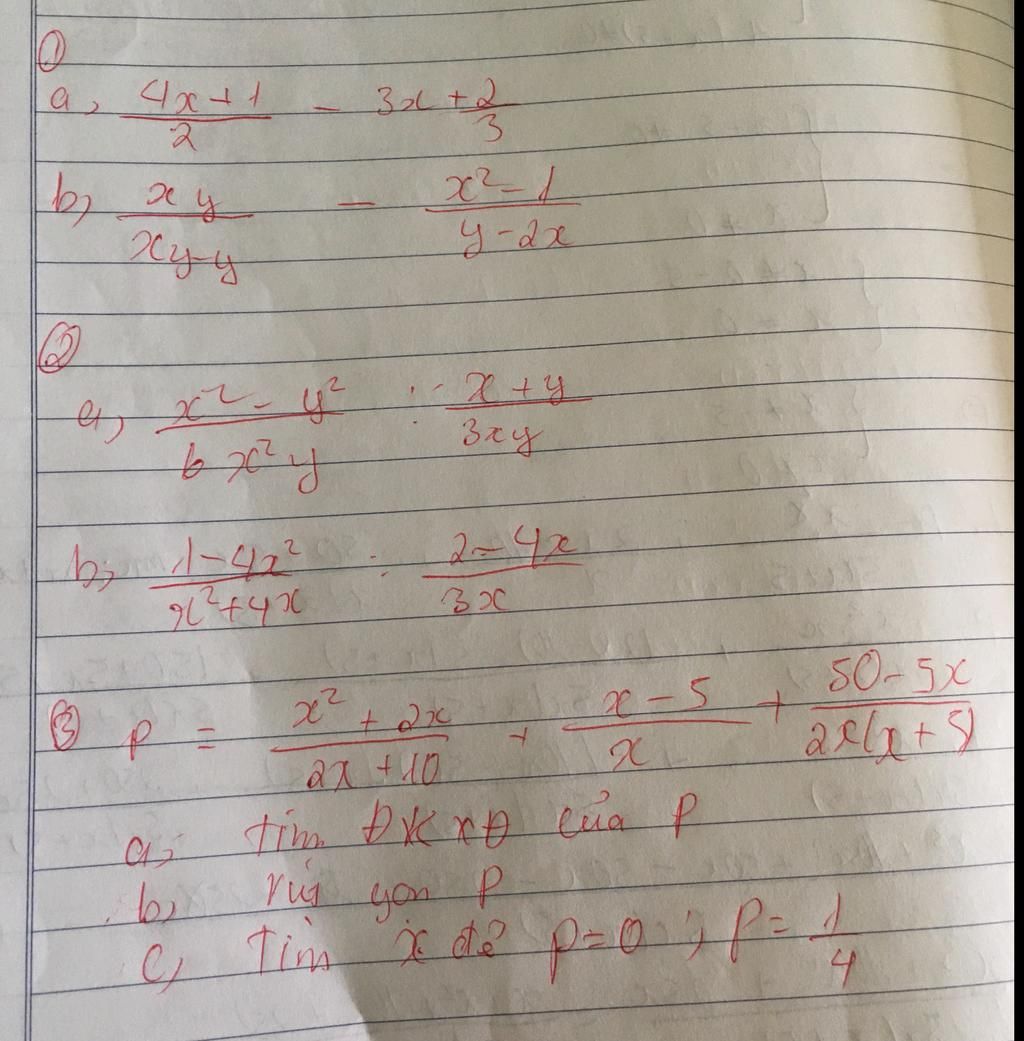 ①
a, (4x+1)/2 - 3x + 2/3
b, xy/(xy-y) - (x²-1)/(y-2x)
②
a, (x² - y²)/(6x²y) : (x+y)/(3xy)
b, (1-4x²)/(x²+4x) : (2-4x)/(3x)
③ P = (x² + 2x)/(2x + 10) + (x-5)/x + (50-5x)/(2x(x+5))
a, tìm ĐKXĐ của P
b, rút gọn P
c, Tìm x để P=0 ; P= 1/4